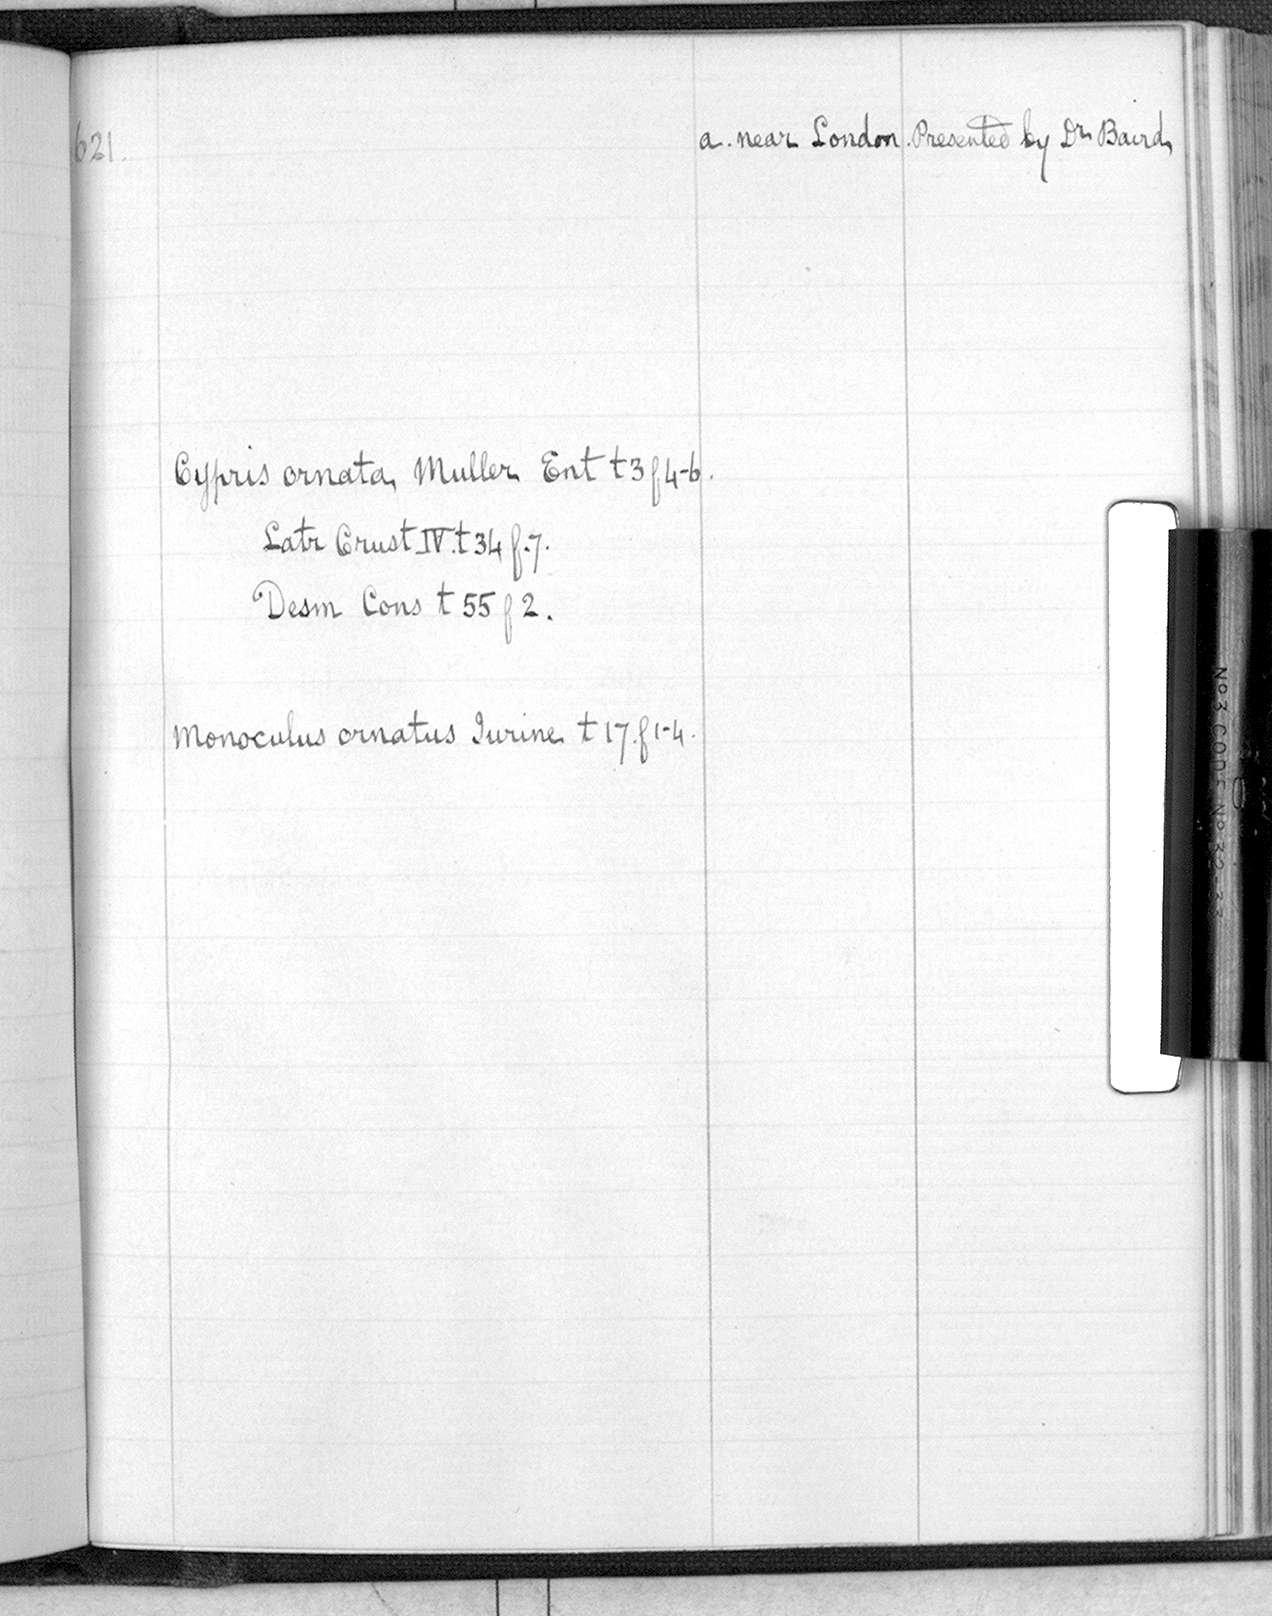 621.
a. near London. Presented by Dr Baird,
Cypris ornata, Muller Ent t 3 f 4-6.
Latr Crust IV. t 34 f. 7.
Desm Cons t 55 f 2.
Monoculus ornatus Jurine t 17. f 1-4.
No 3 CODE No 32-33